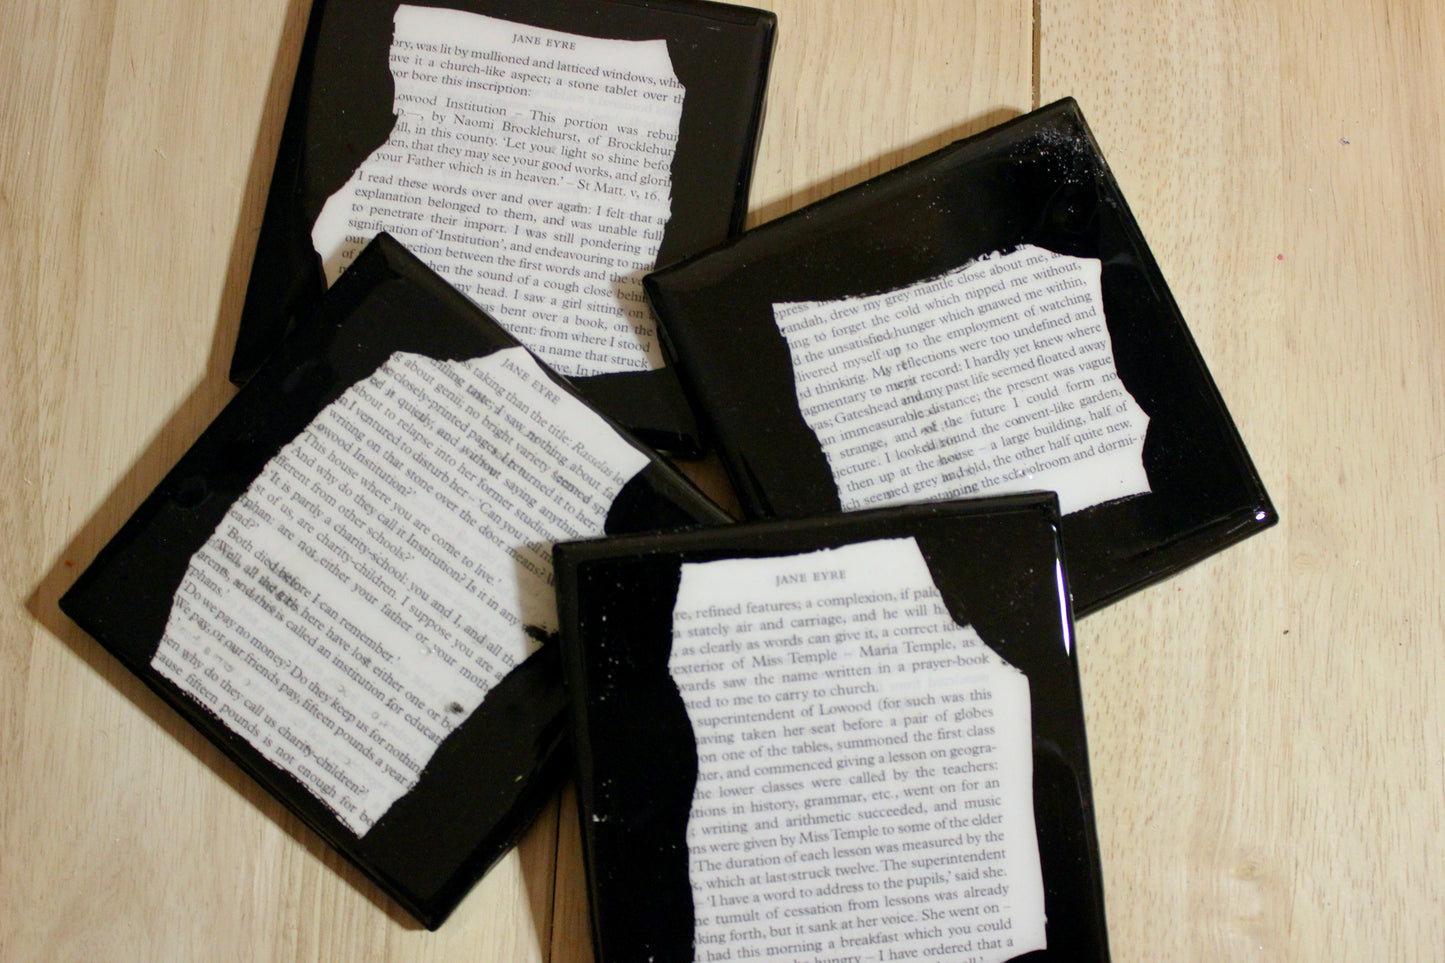 JANE EYRE
ory, was lit by mullioned and latticed windows, whi
ave it a church-like aspect; a stone tablet over th
oor bore this inscription:
owood Institution – This portion was rebui
D.—, by Naomi Brocklehurst, of Brocklehur
all, in this county. 'Let your light so shine befo
en, that they may see your good works, and glori
your Father which is in heaven.' – St Matt. v, 16.
I read these words over and over again: I felt that a
explanation belonged to them, and was unable full
to penetrate their import. I was still pondering th
signification of 'Institution', and endeavouring to mak
out nection between the first words and the ve
of when the sound of a cough close behi
my head. I saw a girl sitting on
as bent over a book, on the
ntent: from where I stood
; a name that struck
tive. In
press
andah, drew my grey mantle close about me, a
ing to forget the cold which nipped me without,
d the unsatisfied hunger which gnawed me within,
livered myself up to the employment of watching
d thinking. My reflections were too undefined and
agmentary to merit record: I hardly yet knew where
was; Gateshead and my past life seemed floated away
an immeasurable distance; the present was vague
strange, and of the future I could form no
jecture. I looked round the convent-like garden,
then up at the house – a large building, half of
ich seemed grey and old, the other half quite new.
ntaining the schoolroom and dormi-
JANE EYRE
ss taking than the title: Rasselas lo
rifling taste: I saw nothing about fa
g about genii; no bright variety seemed sp
e closely-printed pages. I returned it to her;
ed it quietly, and without saying anything
about to relapse into her former studious
n I ventured to disturb her – 'Can you tell m
writing on that stone over the door means? W
owood Institution?'
'This house where you are come to live.'
And why do they call it Institution? Is it in any
fferent from other schools?'
'It is partly a charity-school: you and I, and all th
st of us, are charity-children. I suppose you are a
rphan: are not either your father or your moth
ead?'
'Both died before I can remember.'
'Well, all the girls here have lost either one or bo
arents, and this is called an institution for educati
phans.'
'Do we pay no money? Do they keep us for nothing
'We pay, or our friends pay, fifteen pounds a year
hen why do they call us charity-children?'
ause fifteen pounds is not enough for bo
JANE EYRE
re, refined features; a complexion, if pale
a stately air and carriage, and he will h
, as clearly as words can give it, a correct ide
exterior of Miss Temple – Maria Temple, as
wards saw the name written in a prayer-book
sted to me to carry to church.
superintendent of Lowood (for such was this
aving taken her seat before a pair of globes
on one of the tables, summoned the first class
her, and commenced giving a lesson on geogra-
he lower classes were called by the teachers:
tions in history, grammar, etc., went on for an
; writing and arithmetic succeeded, and music
ns were given by Miss Temple to some of the elder
The duration of each lesson was measured by the
k, which at last struck twelve. The superintendent
– 'I have a word to address to the pupils,' said she.
he tumult of cessation from lessons was already
king forth, but it sank at her voice. She went on –
had this morning a breakfast which you could
hungry – I have ordered that a